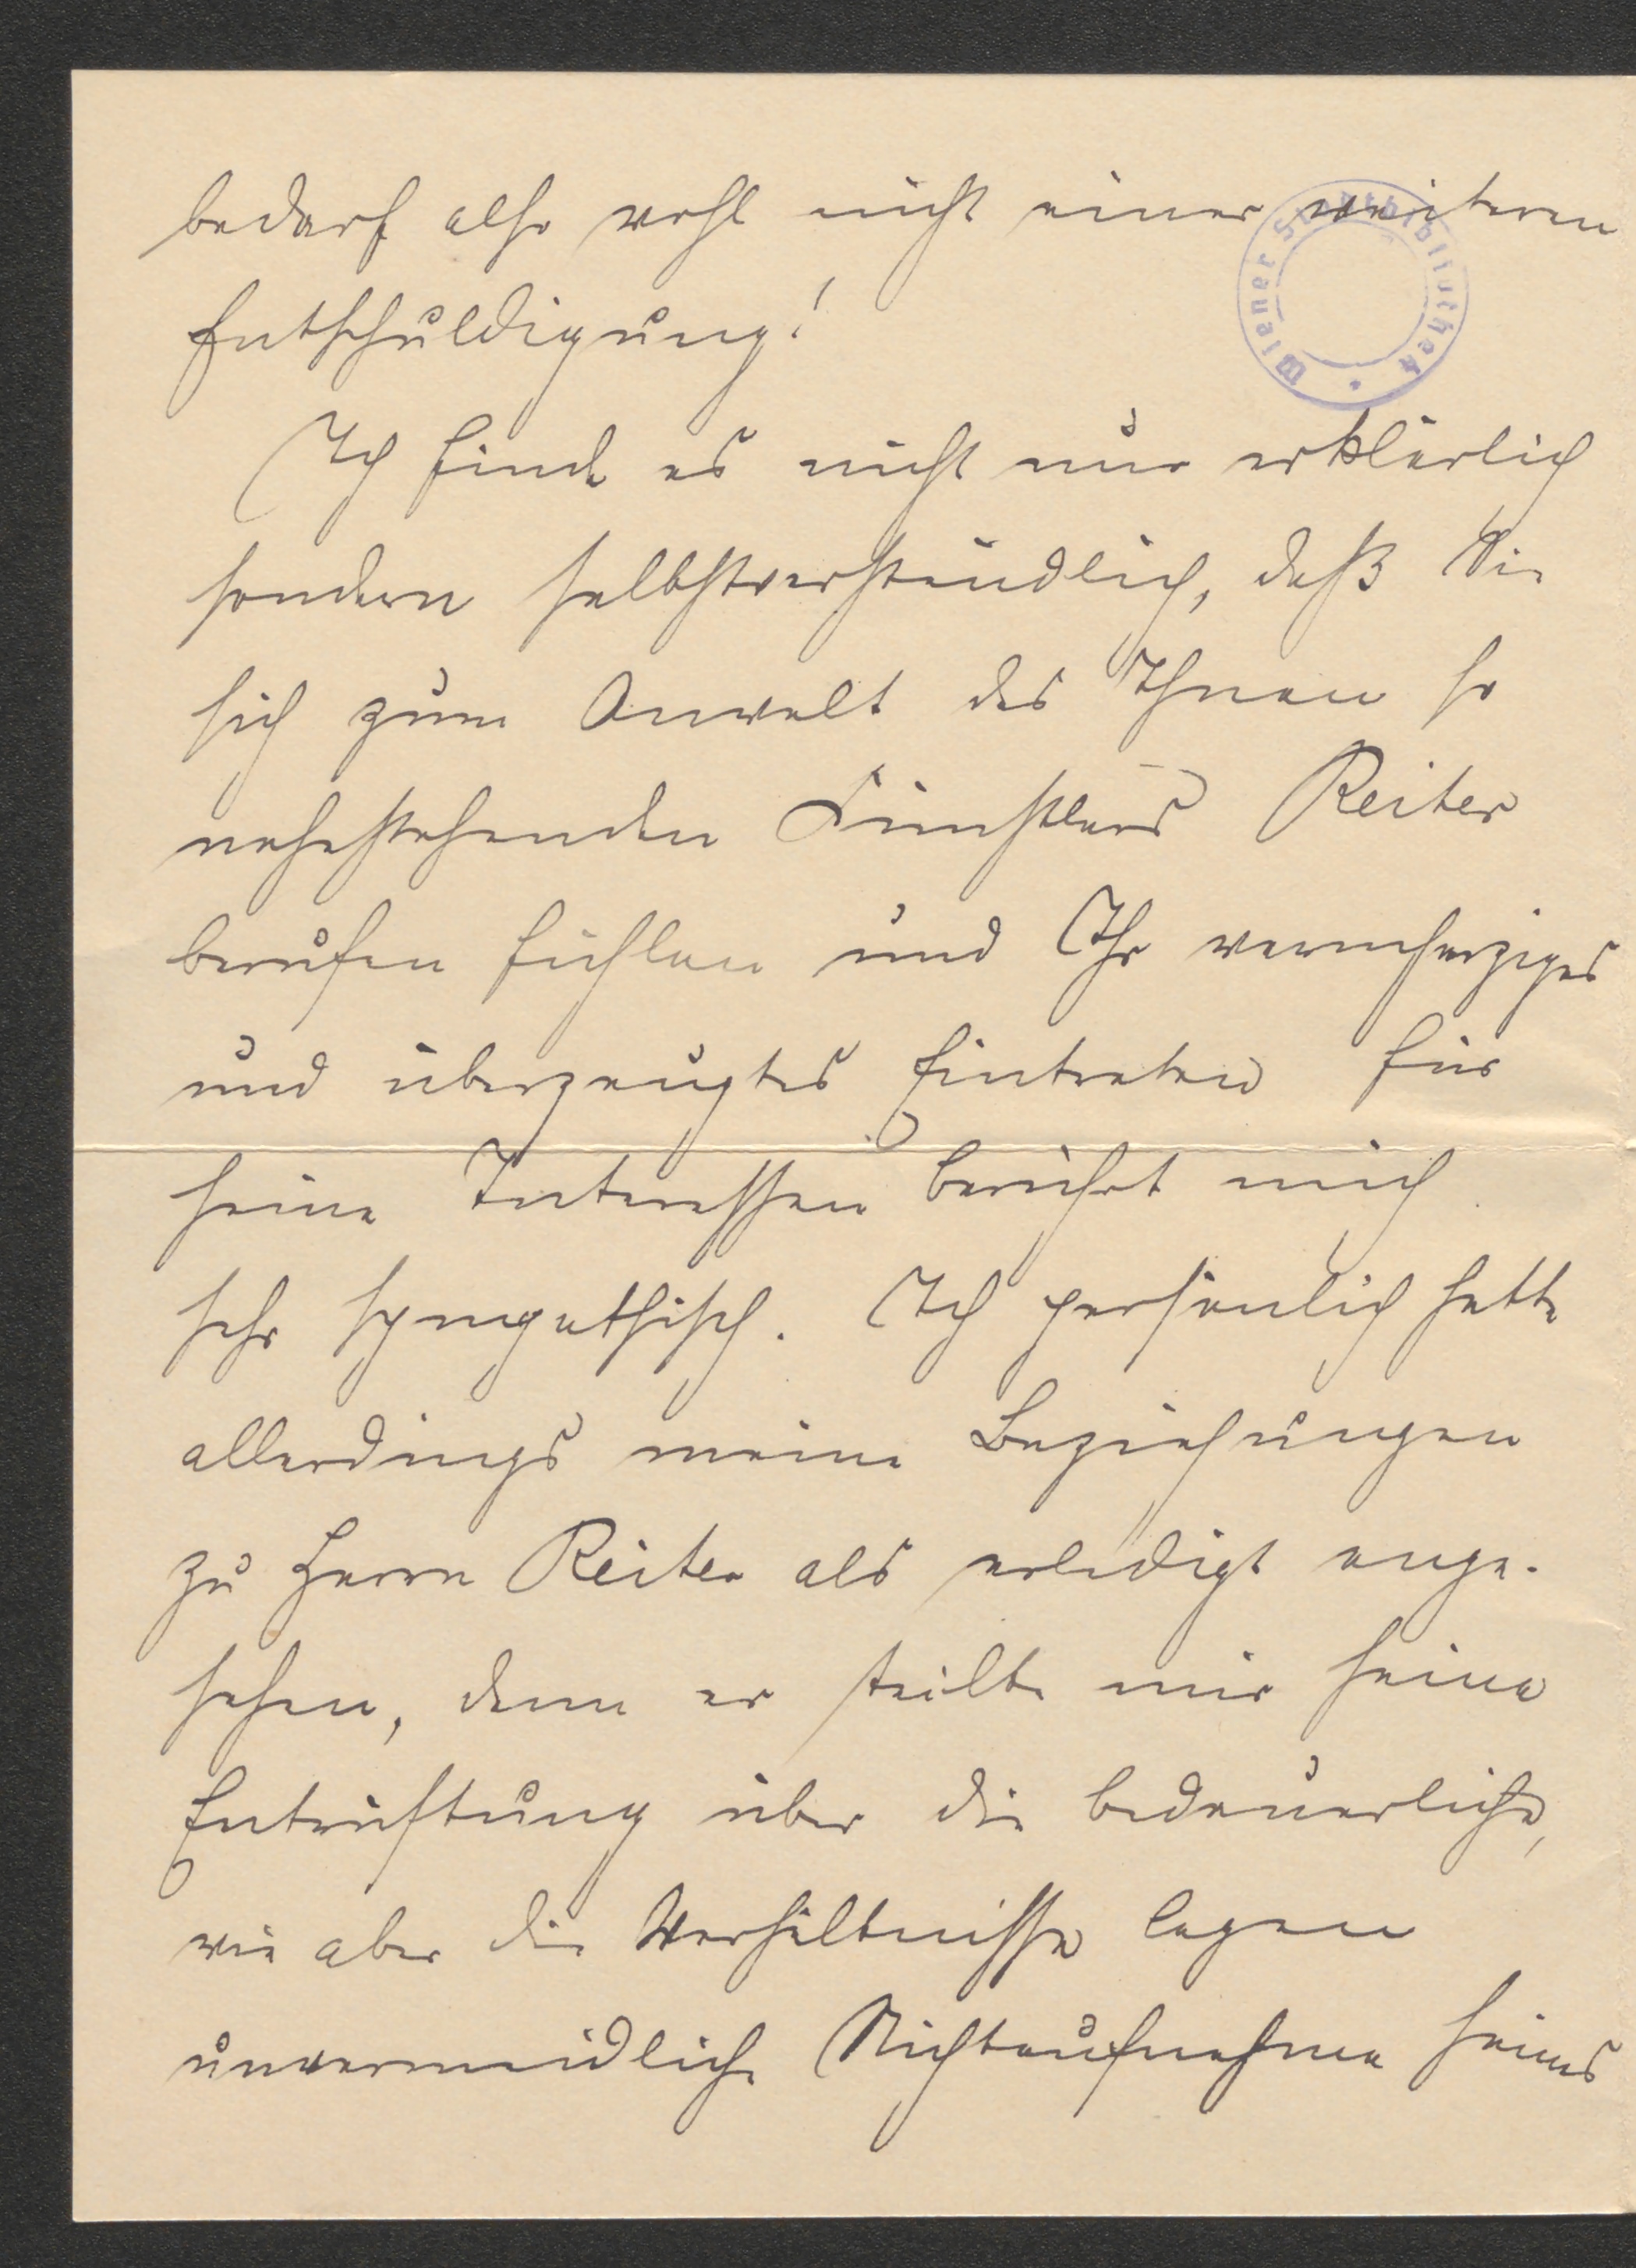 bedarf also wohl nicht einer weiteren
Entschuldigung!
Wiener Stadtbibliothek
Ich finde es nicht nur erklärlich
sondern selbstverständlich, daß Sie
sich zum Anwalt des Ihnen so
nahestehenden Künstlers Reiter
berufen fühlen und Ihr warmherziges
und überzeugtes Eintreten für
seine Interessen berührt mich
sehr sympathisch. Ich persönlich hatte
allerdings meine Beziehungen
zu Herrn Reiter als erledigt ange-
sehen, denn er teilte mir seine
Entrüstung über die bedauerliche,
wie aber die Verhältnisse lagen
unvermeidliche Nichtaufnahme seines